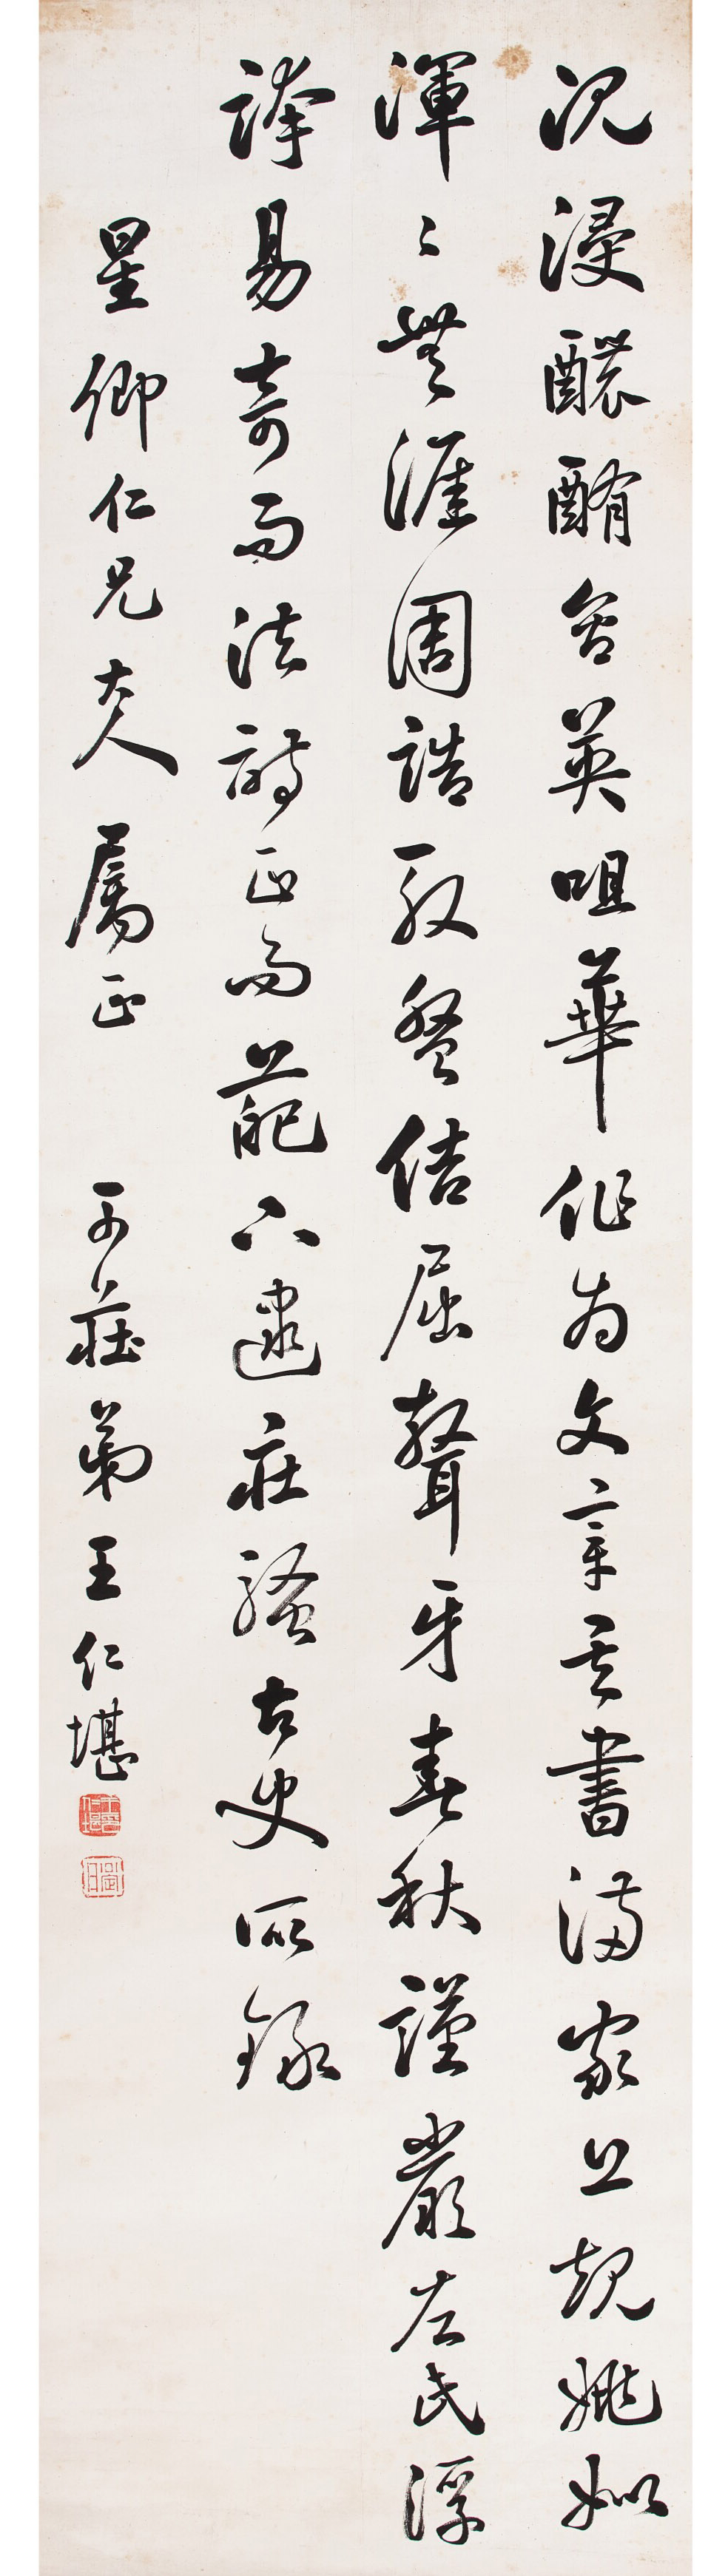 沉浸醲郁含英咀華作為文章其書滿家上規姚姒
渾〻無涯周誥殷盤佶屈聱牙春秋謹嚴左氏浮
誇易奇而法詩正而葩下逮莊騷古史所錄
星卿仁兄大人屬正
可莊弟王仁堪